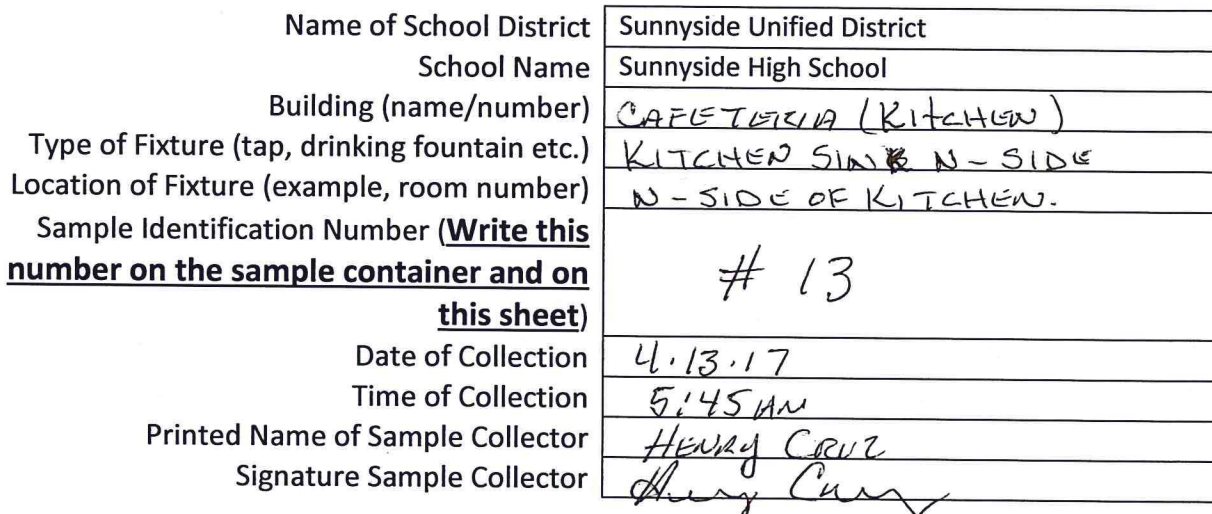 Name of School District Sunnyside Unified District
School Name Sunnyside High School
Building (name/number) CAFETERIA (KITCHEN)
Type of Fixture (tap, drinking fountain etc.) KITCHEN SINK N-SIDE
Location of Fixture (example, room number) N-SIDE OF KITCHEN.
Sample Identification Number (Write this
number on the sample container and on # 13
this sheet)
Date of Collection 4.13.17
Time of Collection 5:45 AM
Printed Name of Sample Collector HENRY CRUZ
Signature Sample Collector Henry Cruz